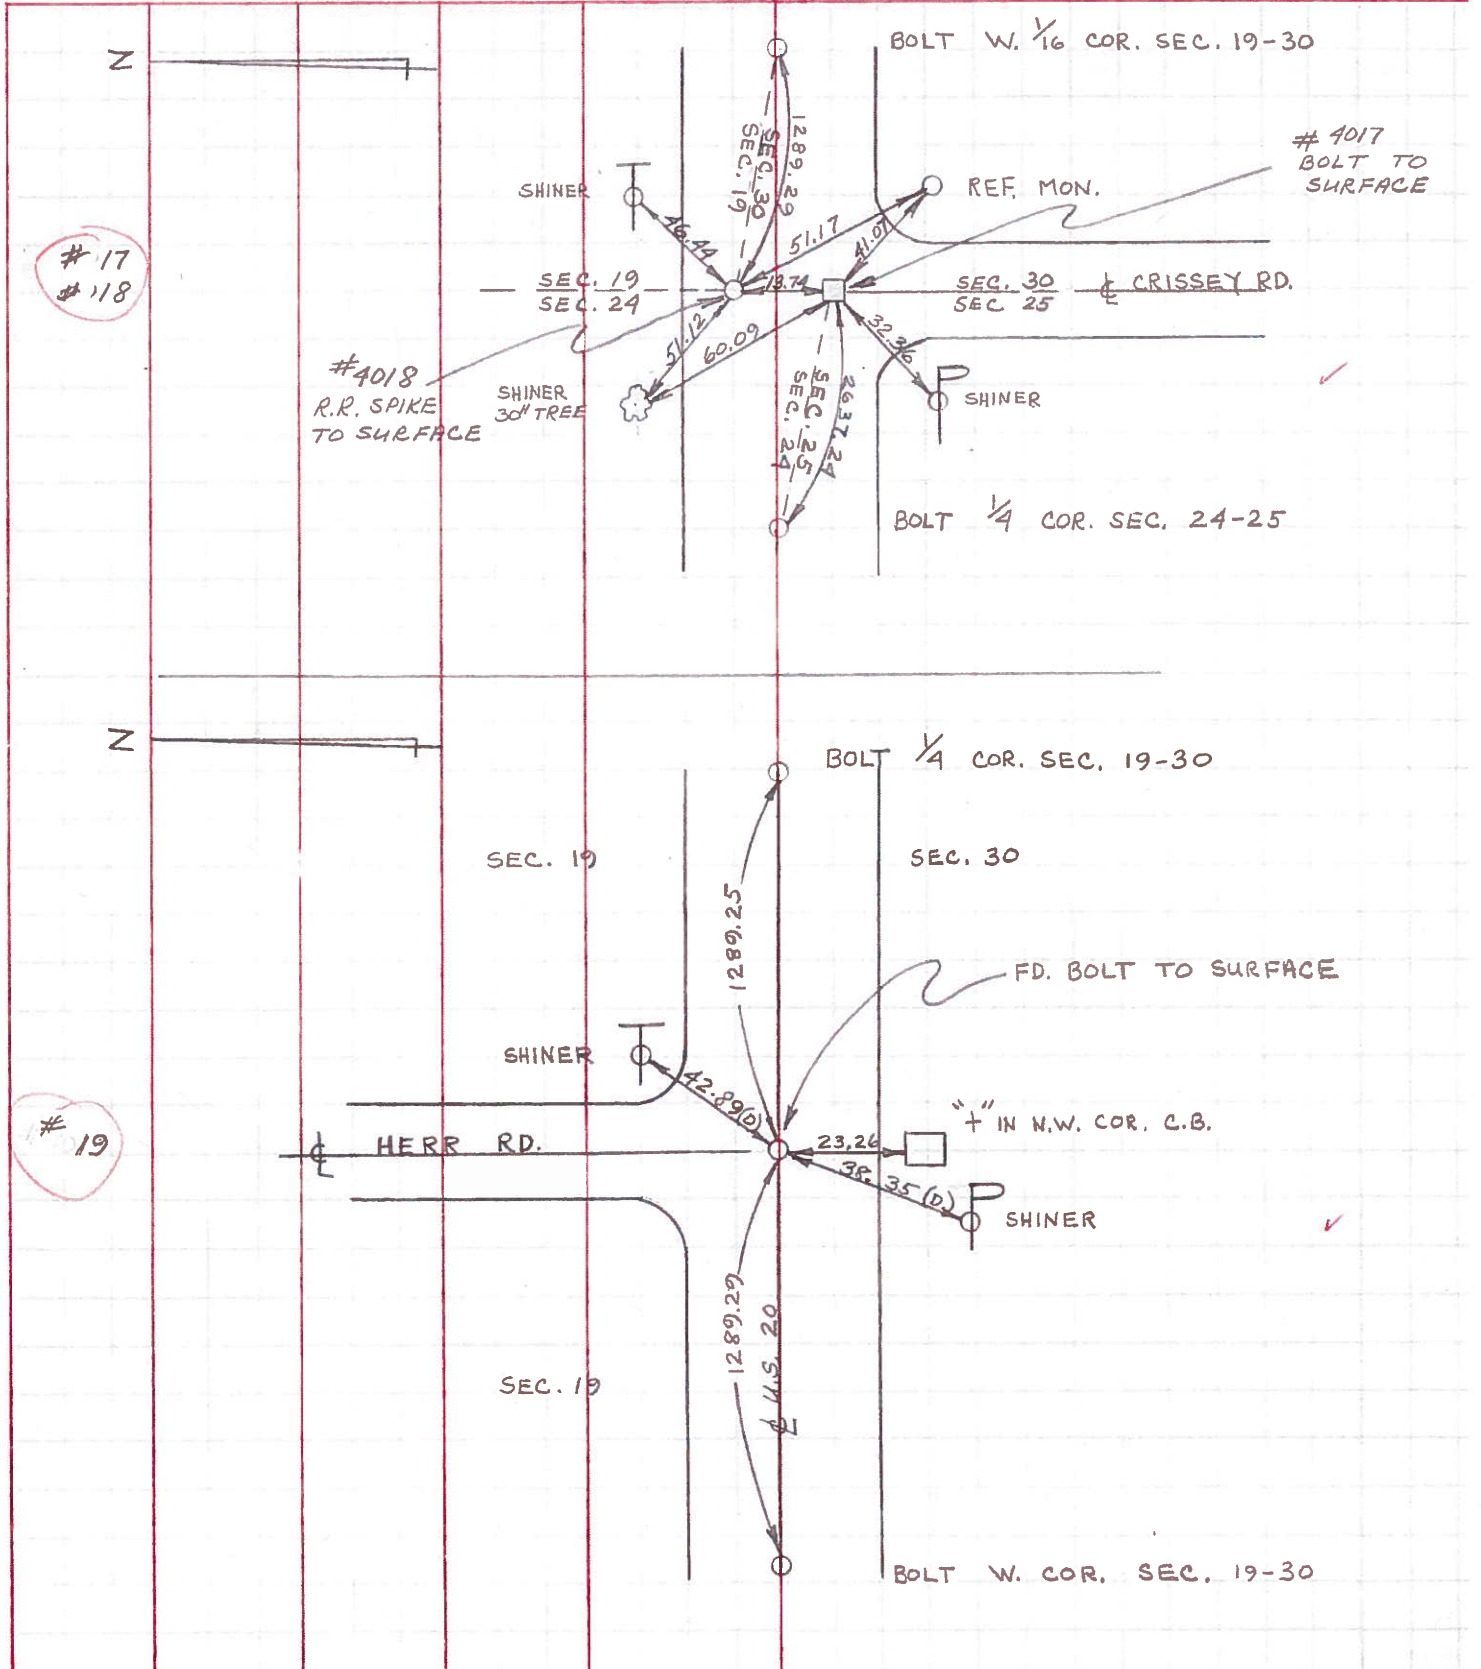 N
BOLT W. 1/16 COR. SEC. 19-30
# 4017
BOLT TO
SURFACE
SHINER
REF. MON.
1289.29
SEC. 30
SEC. 19
46.44
51.17
41.07
# 17
# 18
SEC. 19
SEC. 24
13.74
SEC. 30
SEC 25
℄ CRISSEY RD.
51.12
60.09
32.36
#4018
R.R. SPIKE
TO SURFACE
SHINER
30" TREE
SEC. 25
SEC. 24
2637.24
SHINER
BOLT 1/4 COR. SEC. 24-25
N
BOLT 1/4 COR. SEC. 19-30
SEC. 19
SEC. 30
1289.25
FD. BOLT TO SURFACE
SHINER
42.89(D)
# 19
℄ HERR RD.
23.26
"+" IN N.W. COR. C.B.
38.35(D)
SHINER
1289.29
℄ U.S. 20
SEC. 19
BOLT W. COR. SEC. 19-30